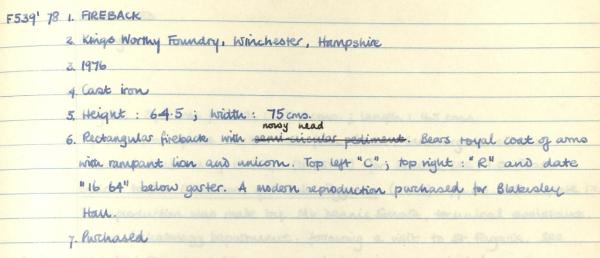 F539' 78 1. FIREBACK
2. Kings Worthy Foundry, Winchester, Hampshire
3. 1976
4. Cast iron
5. Height : 64.5 ; width : 75 cms.
nowy head
6. Rectangular fireback with semi-circular pediment. Bears royal coat of arms
with rampant lion and unicorn. Top left "C" ; top right : "R" and date
"16 64" below garter. A modern reproduction purchased for Blakesley
Hall.
7. Purchased